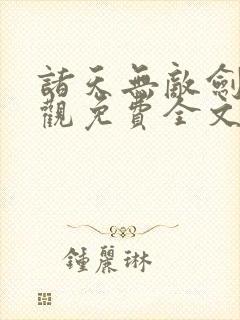 諸天無敵劍
觀免費全文
鍾麗琳